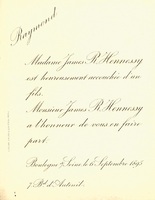 Raymond
Madame James R. Hennessy
est heureusement accouchée d'un
fils.
Monsieur James R. Hennessy
a l'honneur de vous en faire
part.
Boulogne s/ Seine le 6 Septembre 1895
7 Bd d'Auteuil